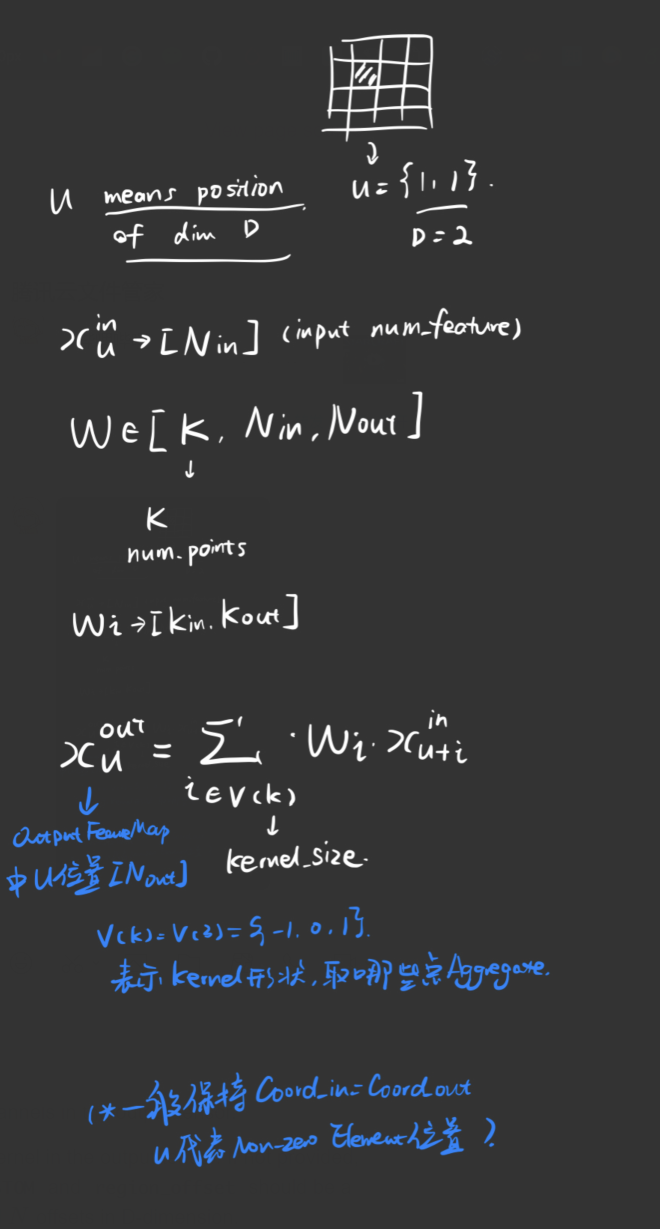 u = {1, 1}.
D = 2
u means position
of dim D
x_u^in → [Nin] (input num_feature)
W ∈ [K, Nin, Nout]
↓
K
num_points
Wi → [Kin, Kout]
x_u^out = Σ_{i∈V(k)} · Wi · x_{u+i}^in
↓
kernel_size.
↓
中 U位置 [Nout]
V(k) = V(3) = {-1, 0, 1}.
表示 kernel 形状, 取哪些点 Aggregate.
(* 一般保持 Coord_in = Coord_out
u 代表 Non-zero Element 位置 )